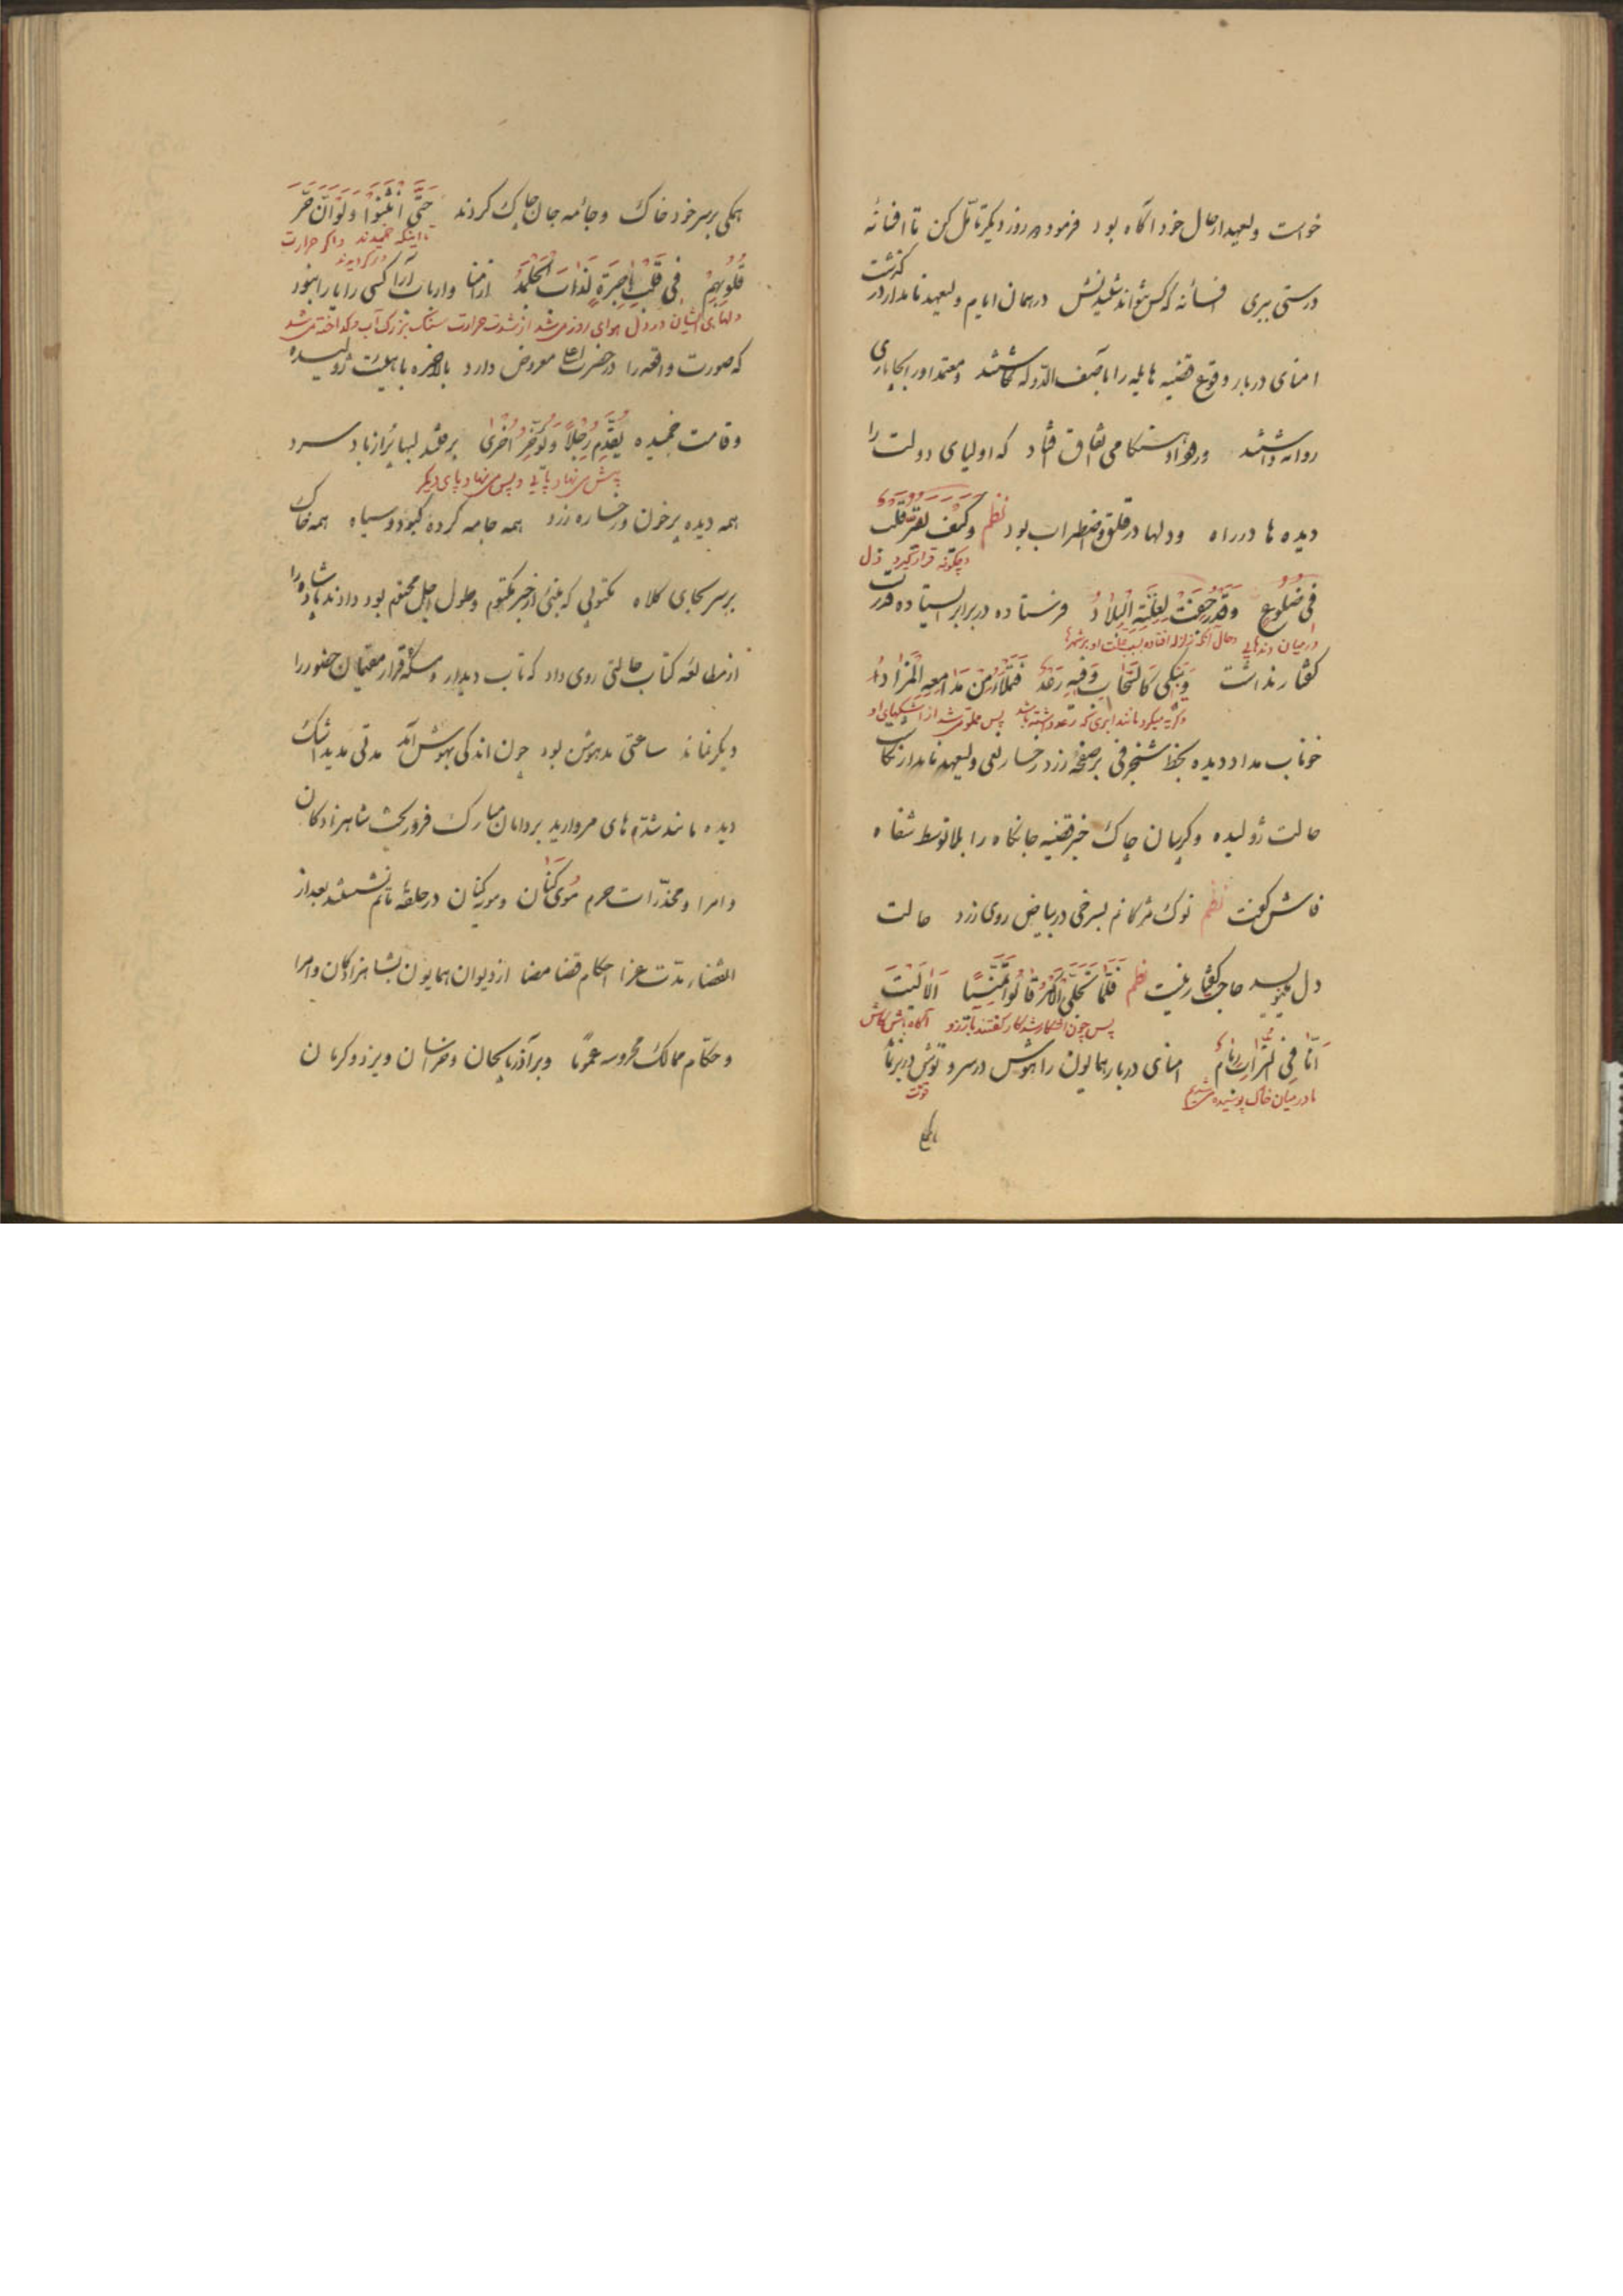 خواست ولیعهد از حال خود آگاه بود فرمود هر روز دیگر تأمل کن تا افسانهٔ
درستی ببری افسانه که کس نتواند شنیدنش در همان ایام ولیعهد نامدار در گذشت
امنای دربار وقوع قضیه هایله را بآصف الدوله نگاشتند و معتمد اور
روانه داشتند و هنگامی اتفاق افتاد که اولیای دولت را
دیده ها در راه و دلها در قلق و اضطراب بود نظم وکیف یقر قلب
وچگونه قرار گیرد دل
فی ضلوع وقد رجفت لعلته البلاد فرستاده در برابر ایستاده قدرت
در میان دنده‌هایی وحال آنکه زلزله افتاده بسبب علت او برشهرها
گفتار نداشت ویبکی کالسحاب وفیه رعد فتملأ من مدامعه المزاد
وگریه میکرد مانند ابری که رعد داشته باشد پس مملو میشد از اشکهای او
خوناب مداد دیده بخط شنجرفی بر صفحه زرد رخسار نعی ولیعهد نامدار
حالت ژولیده وگریبان چاک خبر قضیه جانکاه را بلا توسط شفاه
فاش گفت نظم نوک مژگانم بسرخی در بیاض روی زرد حالت
دل مینویسد حاجت گفتار نیست نظم فلما تجلی الامر قالوا تمنیا الا لیت
پس چون آشکار شد کار گفتند بآرزو آگاه باش کاش
انا فی التراب رمام امنای دربار همایون را هوش در سر و توش در بر نماند
ما در میان خاک پوشیده میشدیم
قوت
همگی بر سر خود خاک و جامه جان چاک کردند حتی انثنوا ولو ان حر
تا اینکه خمیدند واگر حرارت
قلوبهم فی قلب هاجرة لذاب الجلمد از امنا وارباب آرا کسی را یارا نبود
دلهای ایشان در دل هوای روز میشد از شدت حرارت سنگ بزرگ آب وگداخته میشد
که صورت واقعه را در حضرت اعلی معروض دارد بالاخره با هیئت ژولیده
و قامت خمیده یقدم رجلا ویؤخر اخری برفتند لبها پر از باد سرد
پیش می نهاد پایی وپس می نهاد پای دیگر
همه دیده پرخون ورخساره زرد همه جامه کرده کبود و سیاه همه خاک
بر سر بجای کلاه مکتوبی که مبنی از خبر مکتوم وحلول اجل محتوم بود دادند پادشاه را
از مطالعه کتاب حالتی روی داد که تاب دیدار و قرار مقیمان حضور را
دیگر نماند ساعتی مدهوش بود چون اندکی بهوش آمد مدتی مدید اشک
دیده مانند های مروارید بر دامان مبارک فرو ریخت شاهزادگان
و امرا و مخدرات حرم موی کنان و مویه کنان در حلقه ماتم نشستند بعد از
انقضاء مدت عزا احکام قضا مضا از دیوان همایون بشاهزادگان وامرا
و حکام ممالک محروسه عموما و بر آذربایجان وخراسان ویزد وکرمان